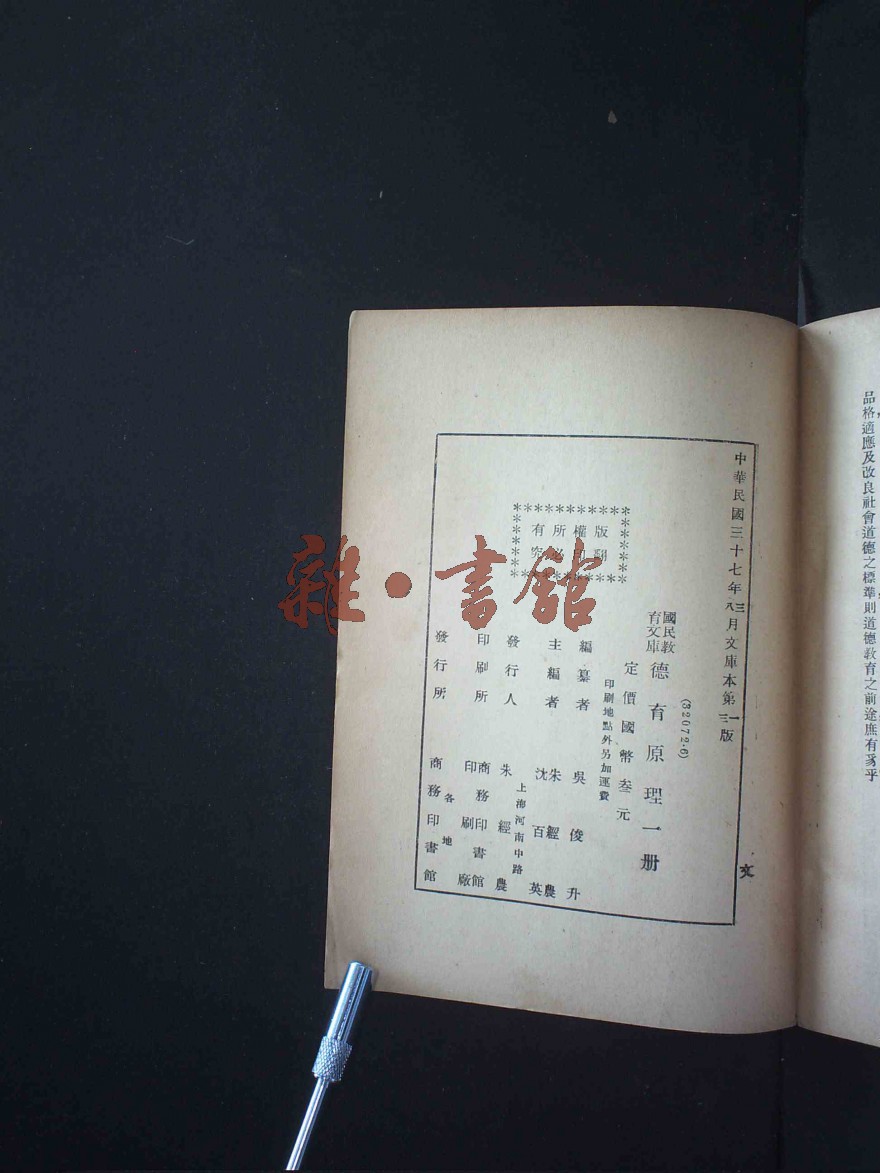 品格適應及改良社會道德之標準則道德教育之前途庶有豸乎
中華民國三十七年三月文庫本第一版
八 三
文
(32072·6)
國民教育文庫
德育原理一册
定價國幣叁元
印刷地點外另加運費
編纂者 吳俊升
主編者 朱經農 沈百英
發行人 朱經農
上海河南中路
印刷所 商務印書館印刷廠
各地
發行所 商務印書館
版權所有
翻印必究
雜·書館